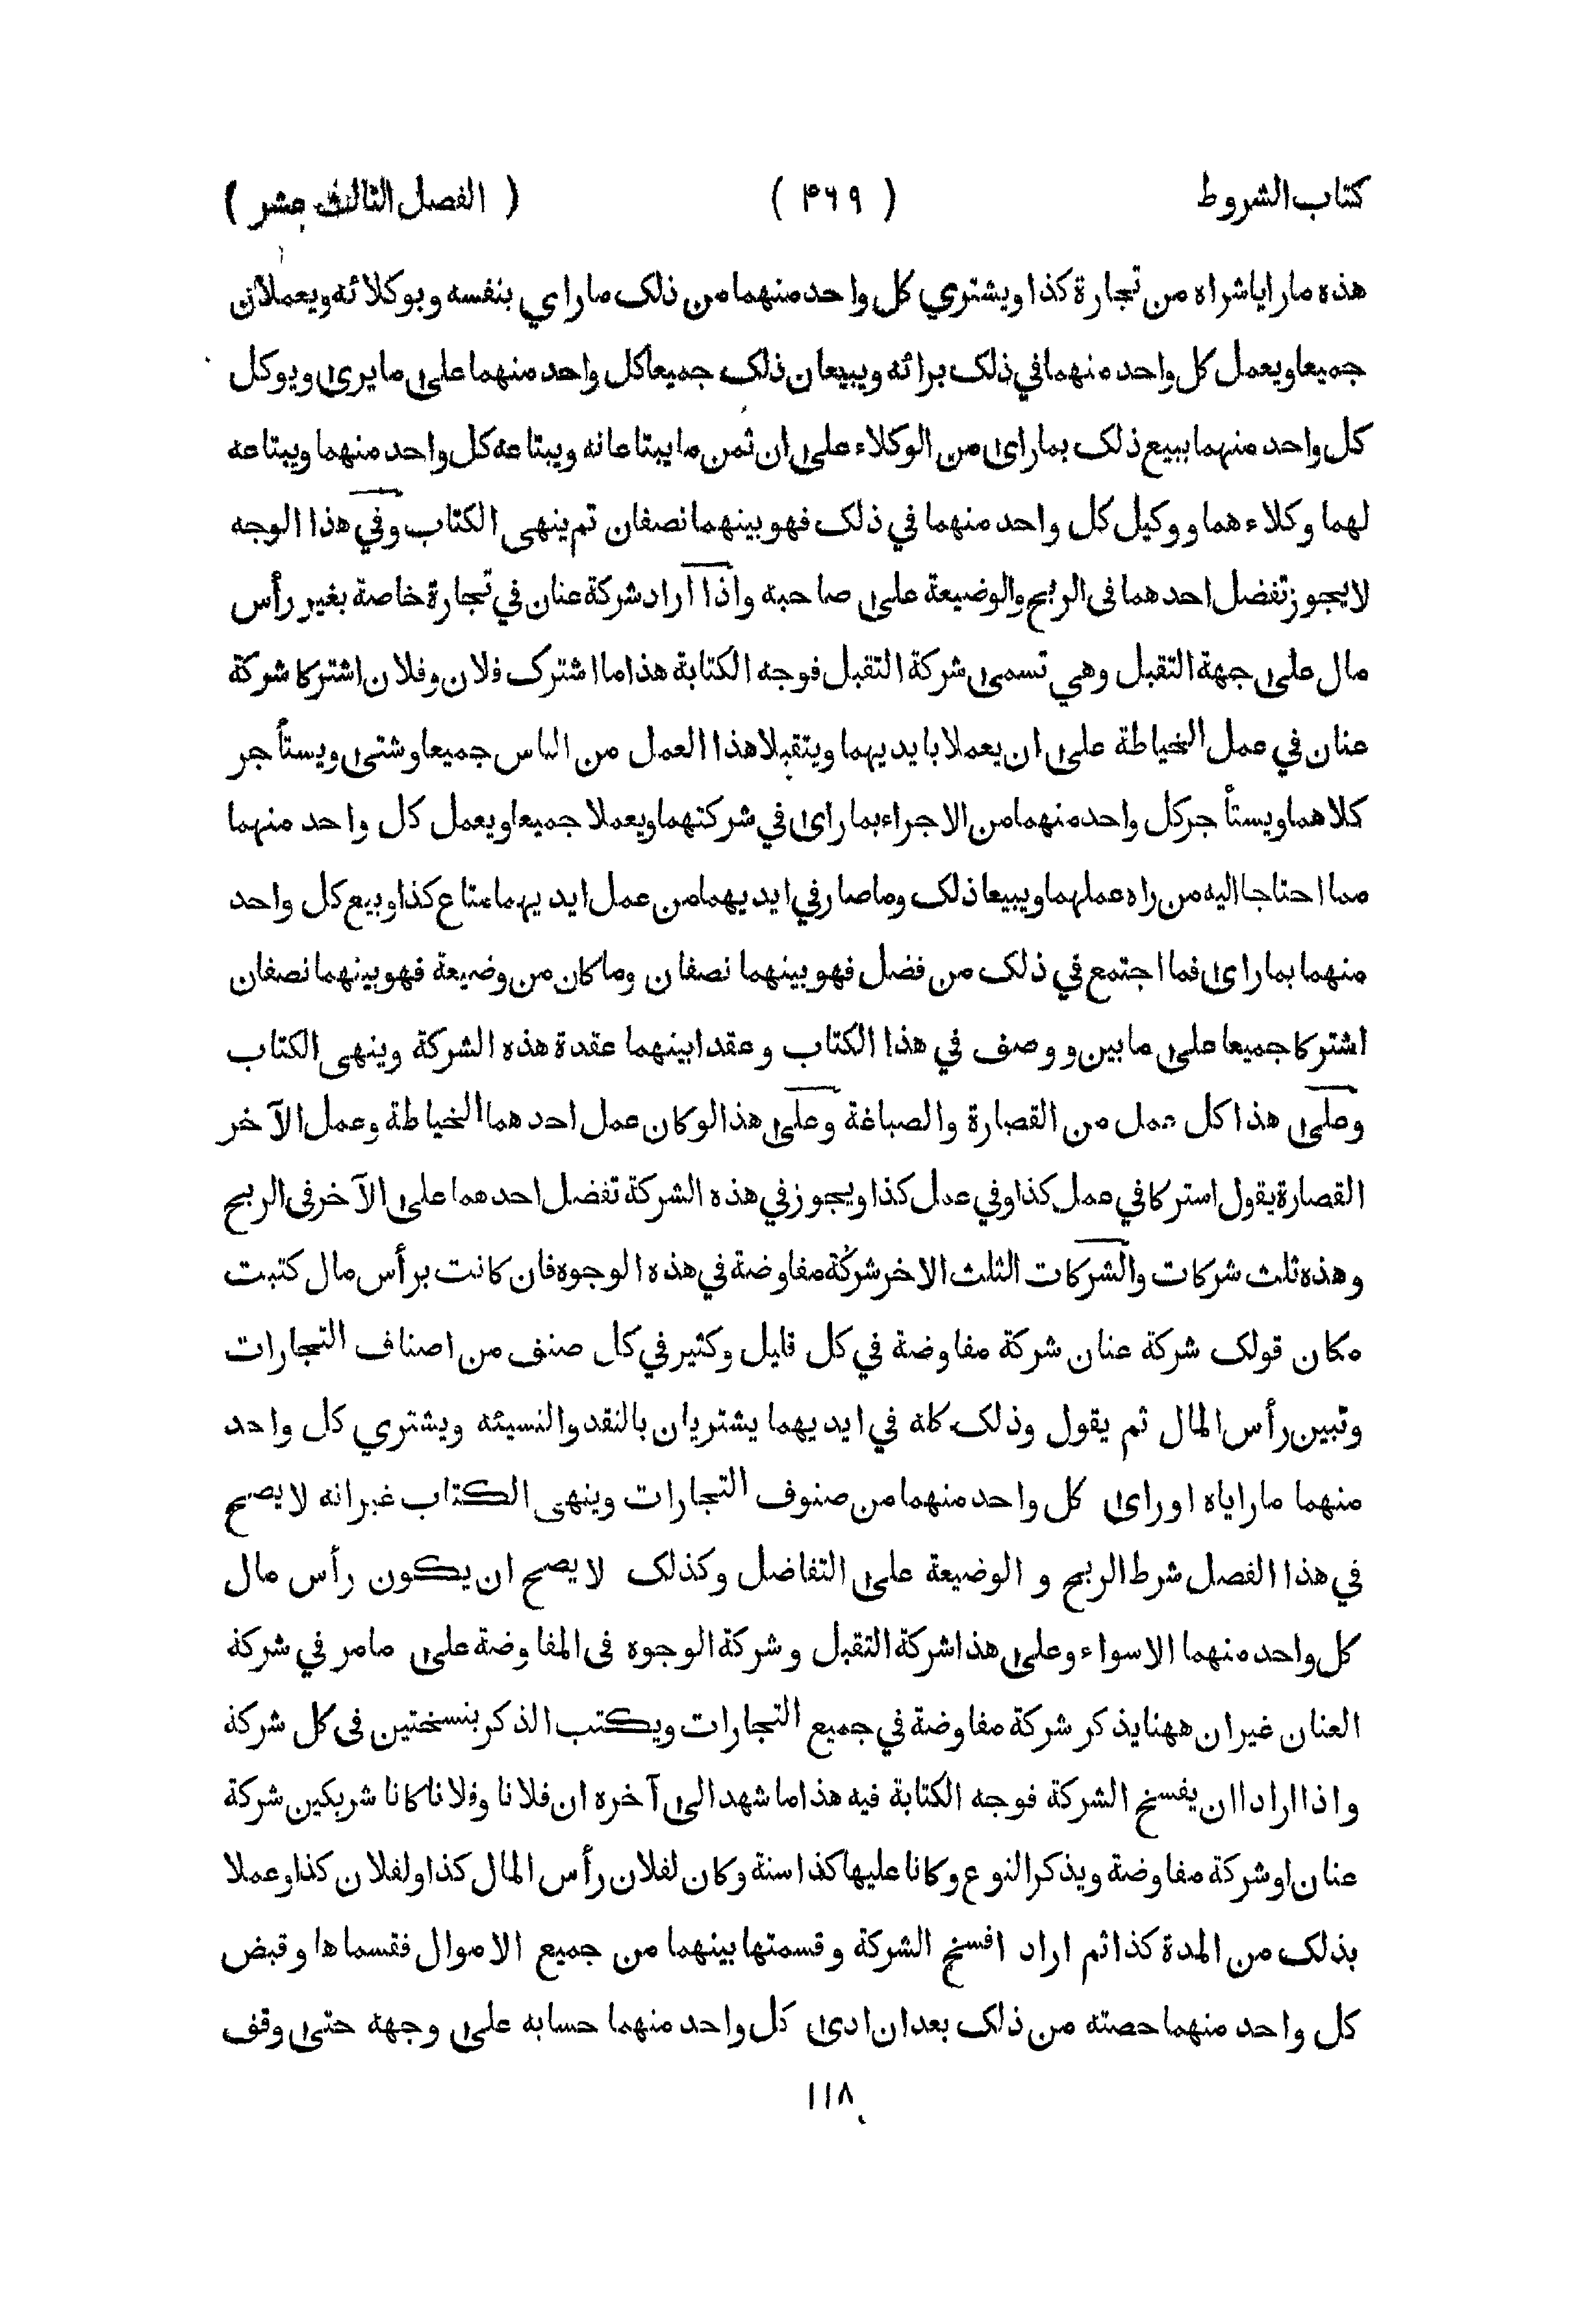 كتاب الشروط ( ۴۶۹ ) ( الفصل الثالث عشر )
هذه ما رايا شراه من تجارة كذا ويشتري كل واحد منهما من ذلك ما راي بنفسه وبوكلائه ويعملان
جميعا ويعمل كل واحد منهما في ذلك برائه ويبيعان ذلك جميعا كل واحد منهما على ما يرى ويوكل
كل واحد منهما ببيع ذلك بما راى من الوكلاء على ان ثمن ما يبتاعانه ويبتاعه كل واحد منهما ويبتاعه
لهما وكلاءهما ووكيل كل واحد منهما في ذلك فهو بينهما نصفان ثم ينهى الكتاب وفي هذا الوجه
لا يجوز تفضل احدهما فى الربح والوضيعة على صاحبه واذا اراد شركة عنان في تجارة خاصة بغير رأس
مال على جهة التقبل وهي تسمى شركة التقبل فوجه الكتابة هذا ما اشترك فلان وفلان اشتركا شركة
عنان في عمل الخياطة على ان يعملا بايديهما ويتقبلا هذا العمل من الناس جميعا وشتى ويستأجر
كلاهما ويستأجر كل واحد منهما من الاجراء بما راى في شركتهما ويعملا جميعا ويعمل كل واحد منهما
مما احتاجا اليه من راه عملهما ويبيعا ذلك وما صار في ايديهما من عمل ايديهما متاع كذا وبيع كل واحد
منهما بما راى فما اجتمع في ذلك من فضل فهو بينهما نصفان وما كان من وضيعة فهو بينهما نصفان
اشتركا جميعا على ما بين ووصف في هذا الكتاب وعقدا بينهما عقدة هذه الشركة وينهى الكتاب
وعلى هذا كل عمل من القصارة والصباغة وعلى هذا لو كان عمل احدهما الخياطة وعمل الآخر
القصارة يقول استركا في عمل كذا وفي عمل كذا ويجوز في هذه الشركة تفضل احدهما على الآخر فى الربح
وهذه ثلث شركات والشركات الثلث الاخر شركة مفاوضة في هذه الوجوه فان كانت برأس مال كتبت
مكان قولك شركة عنان شركة مفاوضة في كل قليل وكثير في كل صنف من اصناف التجارات
وتبين رأس المال ثم يقول وذلك كله في ايديهما يشتريان بالنقد والنسيئه ويشتري كل واحد
منهما ما راياه او راى كل واحد منهما من صنوف التجارات وينهى الكتاب غير انه لا يصح
في هذا الفصل شرط الربح و الوضيعة على التفاضل وكذلك لا يصح ان يكون رأس مال
كل واحد منهما الا سواء وعلى هذا شركة التقبل وشركة الوجوه فى المفاوضة على ما مر في شركة
العنان غير ان ههنا يذكر شركة مفاوضة في جميع التجارات ويكتب الذكر بنسختين فى كل شركة
واذا ارادا ان يفسخ الشركة فوجه الكتابة فيه هذا ما شهد الى آخره ان فلانا وفلانا كانا شريكين شركة
عنان او شركة مفاوضة ويذكر النوع وكانا عليها كذا سنة وكان لفلان رأس المال كذا ولفلان كذا وعملا
بذلك من المدة كذا ثم اراد افسخ الشركة وقسمتها بينهما من جميع الاموال فقسماها وقبض
كل واحد منهما حصته من ذلك بعد ان ادى كل واحد منهما حسابه على وجهه حتى وقف
١١٨